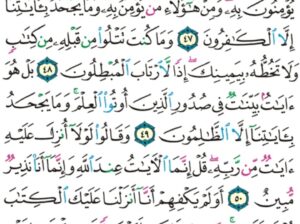 يُؤْمِنُونَ بِهِۦ وَمِنْ هَٰٓؤُلَآءِ مَن يُؤْمِنُ بِهِۦ وَمَا يَجْحَدُ بِـَٔايَٰتِنَآ
إِلَّا ٱلْكَٰفِرُونَ ٤٧ وَمَا كُنتَ تَتْلُوا۟ مِن قَبْلِهِۦ مِن كِتَٰبٍ
وَلَا تَخُطُّهُۥ بِيَمِينِكَ إِذًا لَّٱرْتَابَ ٱلْمُبْطِلُونَ ٤٨ بَلْ هُوَ
ءَايَٰتٌۢ بَيِّنَٰتٌ فِى صُدُورِ ٱلَّذِينَ أُوتُوا۟ ٱلْعِلْمَ وَمَا يَجْحَدُ
بِـَٔايَٰتِنَآ إِلَّا ٱلظَّٰلِمُونَ ٤٩ وَقَالُوا۟ لَوْلَآ أُنزِلَ عَلَيْهِ
ءَايَٰتٌ مِّن رَّبِّهِۦ قُلْ إِنَّمَا ٱلْـَٔايَٰتُ عِندَ ٱللَّهِ وَإِنَّمَآ أَنَا۠ نَذِيرٌ
مُّبِينٌ ٥٠ أَوَلَمْ يَكْفِهِمْ أَنَّآ أَنزَلْنَا عَلَيْكَ ٱلْكِتَٰبَ